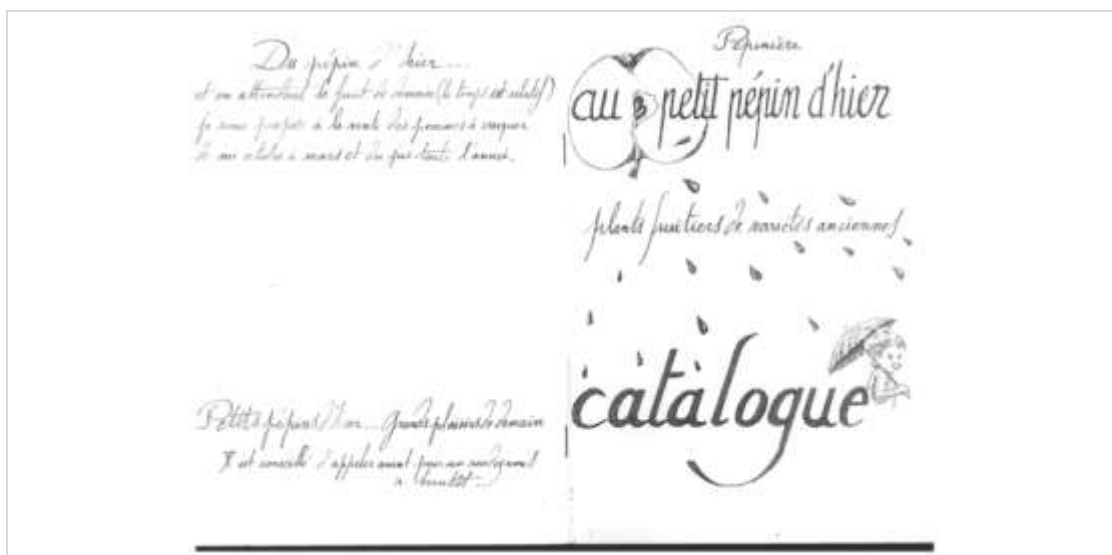 Du pépin d'hier...
et en attendant le fruit de demain (le temps est relatif)
je vous propose à la vente des pommes à croquer
de mi octobre à mars et du jus toute l'année.
Petits pépins d'or... Grands plaisirs de demain
Il est conseillé d'appeler avant pour un rendez vous
à bientôt...
Pépinière
au petit pépin d'hier
plants fruitiers de variétés anciennes
catalogue